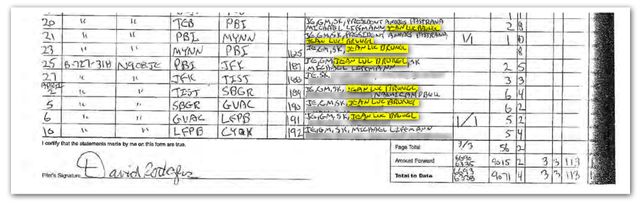 20 " " TEB PBI JE, GM, SK, PRESIDENT ANDRES PASTRANA
MICHAEL LIFFMANN, JEAN LUC BRUNEL 2 8
21 " " PBI MYNN JE, GM, SK, PRESIDENT ANDRES PASTRANA
JEAN LUC BRUNEL 1/1 1 10
23 " " MYNN PBI 185 JE, GM, SK, JEAN LUC BRUNEL 8
25 B-727-31H N908JE PBI JFK 187 JE, GM, JEAN LUC BRUNEL, SK
MICHAEL LIFFMANN 2 5
27 " " JFK TIST JE, SK 3 3
2 " " TIST SBGR 189 JE, GM, SK, JEAN LUC BRUNEL
NAOMI CAMPBELL 6 4
5 " " SBGR GVAC 190 JE, GM, SK, JEAN LUC BRUNEL 6 2
6 " " GVAC LFPB 191 JE, GM, SK, JEAN LUC BRUNEL 1/1 5 2
10 " " LFPB CYQX 192 JE, GM, SK, MICHAEL LIFFMANN 5 4
I certify that the statements made by me on this form are true. Page Total 3/3 56 2
Amount Forward 9015 2 3 3 113
Pilot's Signature David Rodgers Total to Date 9071 4 3 3 113